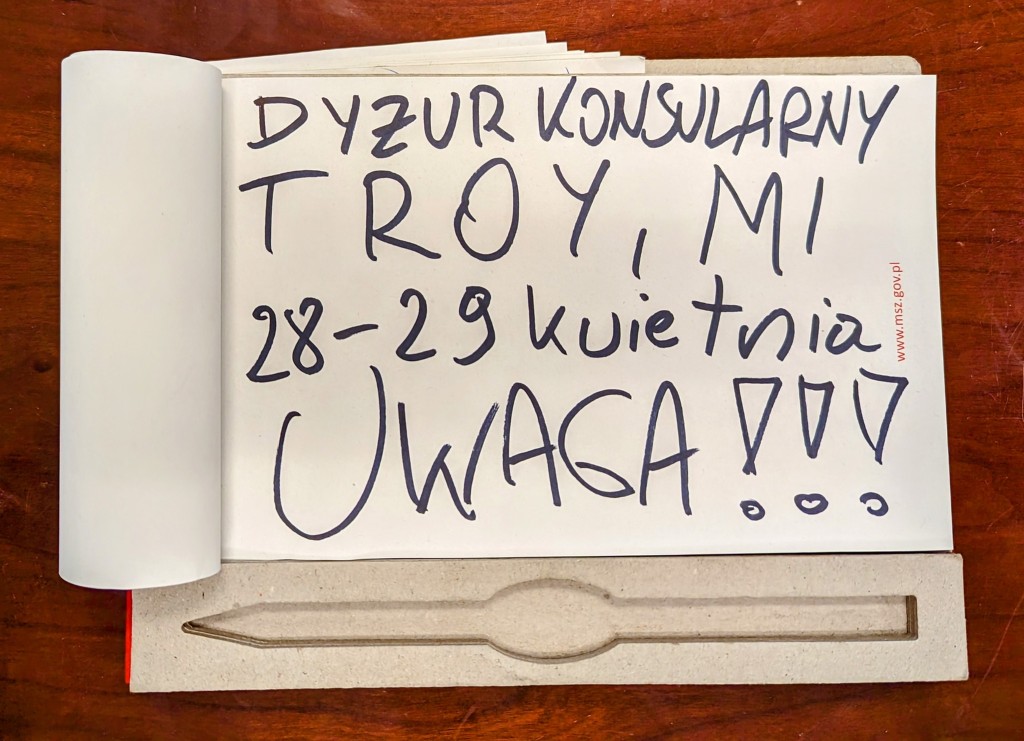 DYŻUR KONSULARNY
TROY, MI
28-29 kwietnia
UWAGA !!!
www.msz.gov.pl